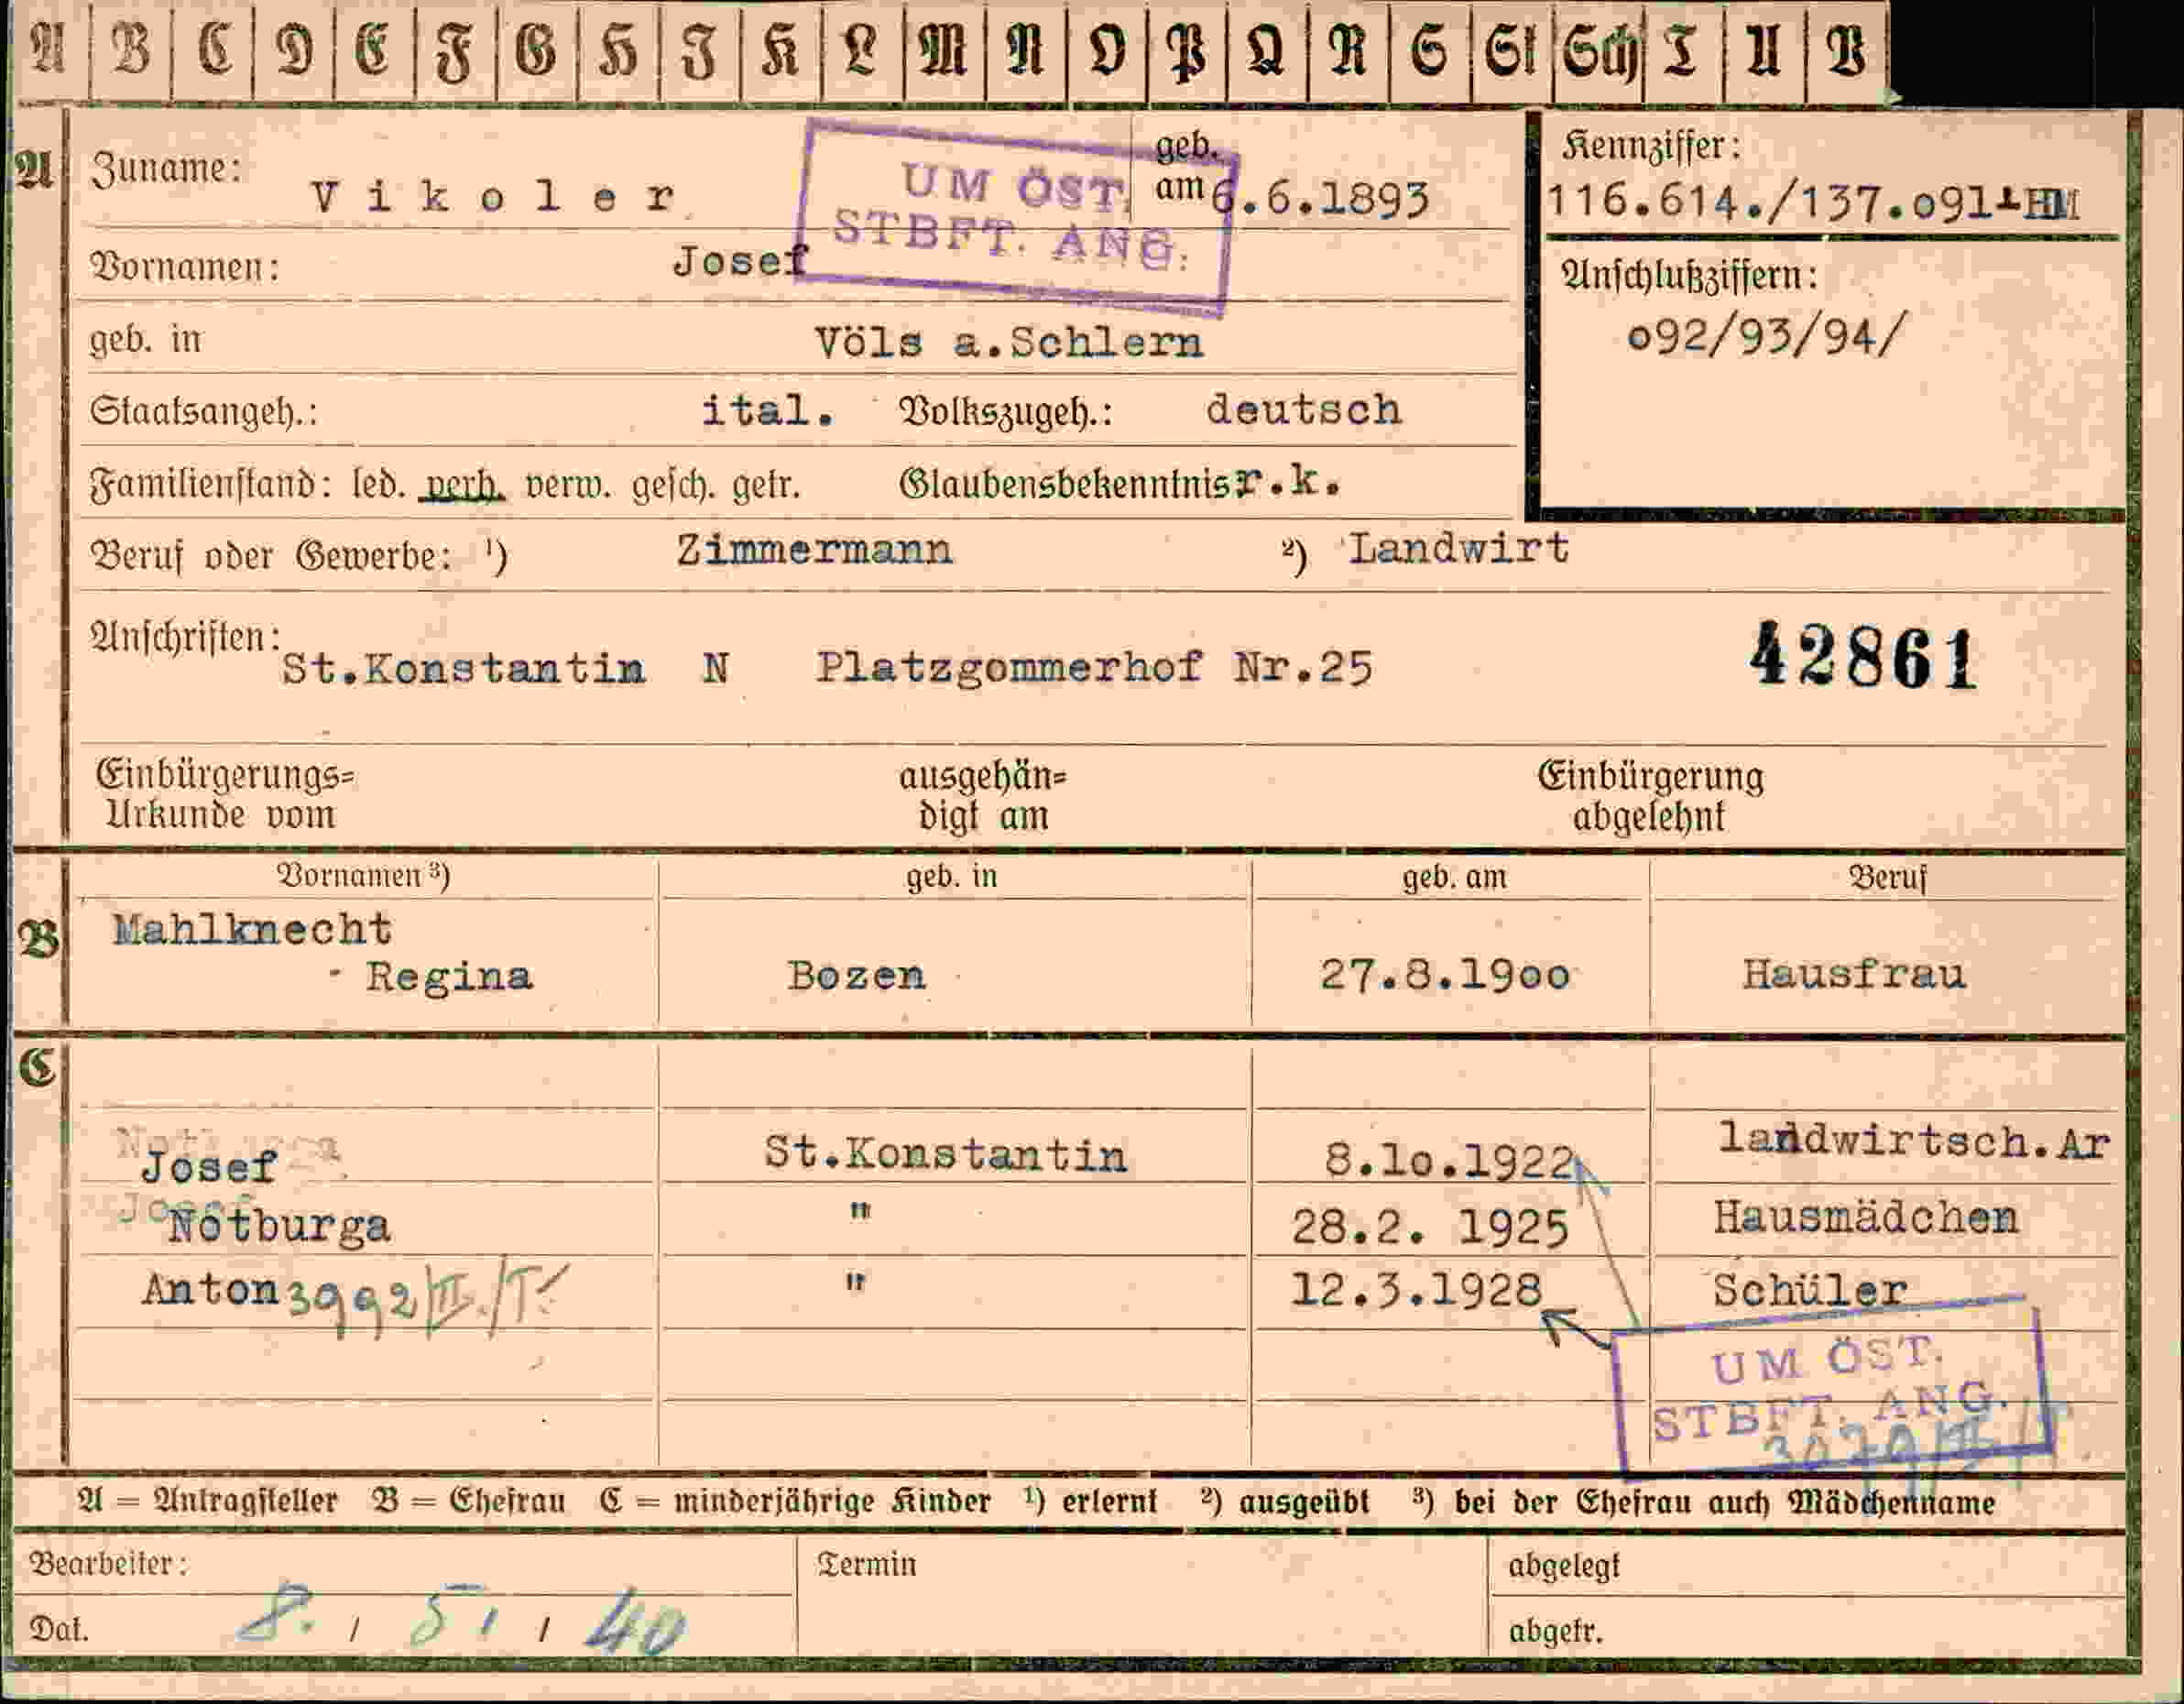 A B C D E F G H I K L M N O P Q R S St Sch T U V
A Zuname: Vikoler geb. am 6.6.1893
UM ÖST.
STBFT. ANG.
Kennziffer:
116.614./137.o91
Vornamen: Josef
Anschlußziffern:
o92/93/94/
geb. in Völs a.Schlern
Staatsangeh.: ital. Volkszugeh.: deutsch
Familienstand: led. verh. verw. gesch. getr. Glaubensbekenntnis r.k.
Beruf oder Gewerbe: ¹) Zimmermann ²) Landwirt
Anschriften: St.Konstantin N Platzgommerhof Nr.25
42861
Einbürgerungs= ausgehän= Einbürgerung
Urkunde vom digt am abgelehnt
Vornamen ³) geb. in geb. am Beruf
B Mahlknecht
- Regina Bozen 27.8.19oo Hausfrau
C
Josef St.Konstantin 8.1o.1922 landwirtsch.Ar
Notburga " 28.2. 1925 Hausmädchen
Anton 3992/II./T. " 12.3.1928 Schüler
UM ÖST.
STBFT. ANG.
A = Antragsteller B = Ehefrau C = minderjährige Kinder ¹) erlernt ²) ausgeübt ³) bei der Ehefrau auch Mädchenname
Bearbeiter: Termin abgelegt
Dat. 8. / 5. / 40 abgetr.